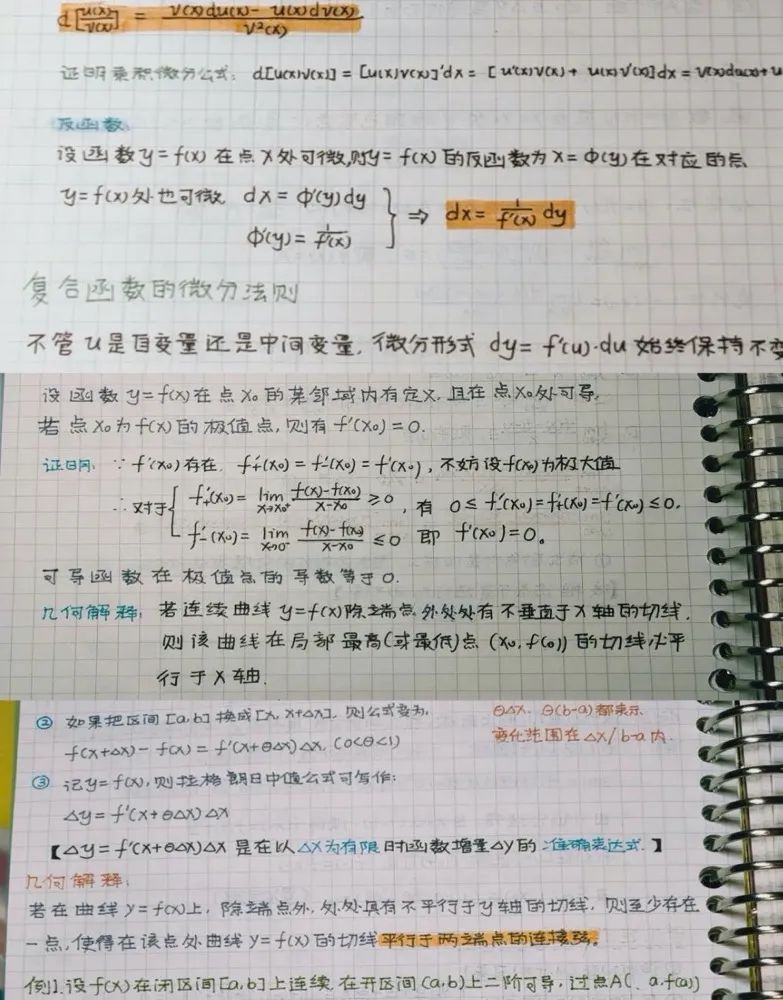 d[u(x)/v(x)] = (v(x)du(x) - u(x)dv(x))/v²(x)
证明乘积微分公式: d[u(x)v(x)] = [u(x)v(x)]'dx = [u'(x)v(x) + u(x)v'(x)]dx = v(x)du(x)+u
反函数:
设函数y=f(x)在点x处可微,则y=f(x)的反函数为x=Φ(y)在对应的点
y=f(x)处也可微 dx=Φ'(y)dy
Φ'(y)=1/f'(x)
} ⇒ dx = 1/f'(x) dy
复合函数的微分法则
不管u是自变量还是中间变量,微分形式 dy=f'(u)·du 始终保持不变
设函数y=f(x)在点x₀的某邻域内有定义,且在点x₀处可导,
若点x₀为f(x)的极值点,则有f'(x₀)=0.
证明: ∵f'(x₀)存在, f'₊(x₀)=f'₋(x₀)=f'(x₀),不妨设f(x₀)为极大值
∴对于{ f'₊(x₀)= lim x→x₀⁺ (f(x)-f(x₀))/(x-x₀) ≥0, 有 0≤f'₋(x₀)=f'₊(x₀)=f'(x₀)≤0.
f'₋(x₀)= lim x→0⁻ (f(x)-f(x₀))/(x-x₀) ≤0 即 f'(x₀)=0。
可导函数在极值点的导数等于0.
几何解释: 若连续曲线y=f(x)除端点外处处有不垂直于X轴的切线.
则该曲线在局部最高(或最低)点(x₀, f(₀))的切线必平
行于X轴.
② 如果把区间[a,b]换成[x, x+Δx], 则公式变为,
f(x+Δx)-f(x)=f'(x+θΔx)Δx, (0<θ<1)
θΔx. θ(b-a)都表示
变化范围在Δx/b-a内.
③ 记y=f(x),则拉格朗日中值公式可写作:
Δy=f'(x+θΔx)Δx
【Δy=f'(x+θΔx)Δx 是在以Δx为有限时函数增量Δy的准确表达式.】
几何解释:
若在曲线y=f(x)上,除端点外,处处具有不平行于y轴的切线,则至少存在
一点,使得在该点处曲线y=f(x)的切线平行于两端点的连接弦。
例1.设f(x)在闭区间[a,b]上连续.在开区间(a,b)上二阶可导,过点A(a,f(a))